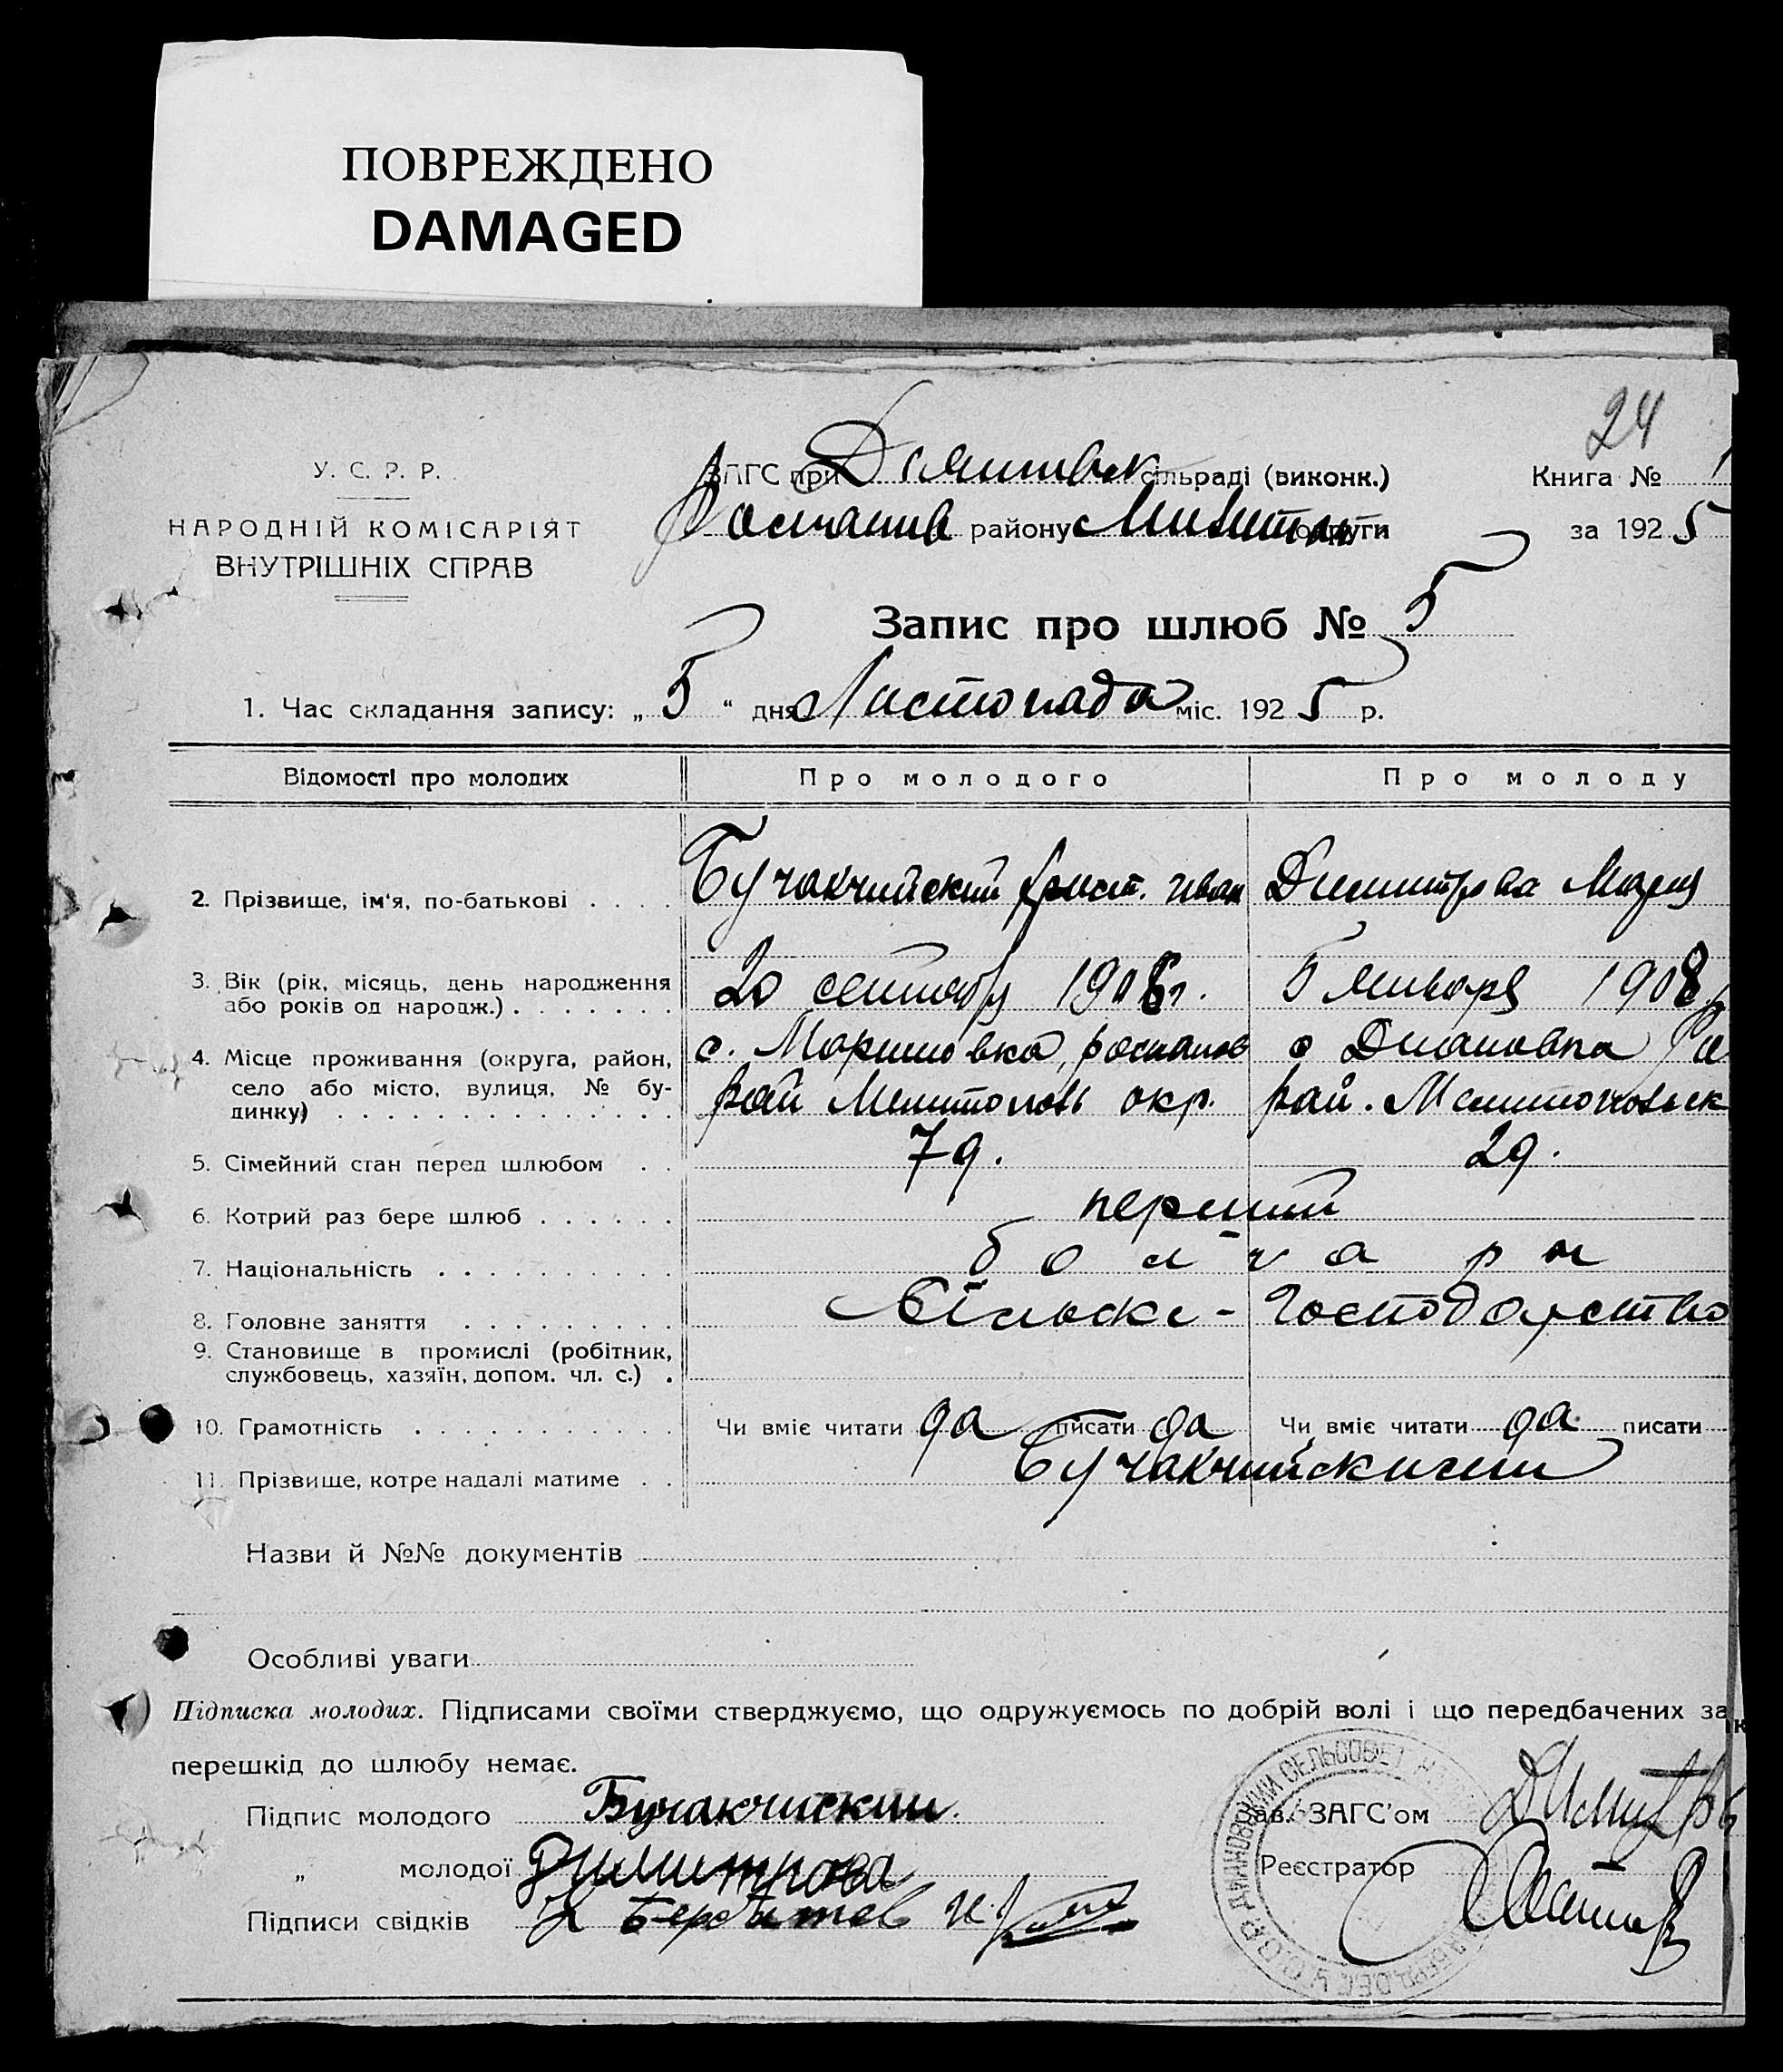 ПОВРЕЖДЕНО
DAMAGED
24
У. С. Р. Р.
НАРОДНІЙ КОМІСАРІЯТ
ВНУТРІШНІХ СПРАВ
ЗАГС при сільраді (виконк.)
району округи
Книга № 1
за 1925
Запис про шлюб № 5
1. Час складання запису: „ 5 “ дня Листопада міс. 1925 р.
Відомості про молодих Про молодого Про молоду
2. Прізвище, ім'я, по-батькові . . . . Бучакчийский Крист. Иван Димитрова Мария
3. Вік (рік, місяць, день народження
або років од народж.) . . . . . . . 20 сентября 1908 г. 5 января 1908
4. Місце проживання (округа, район, с. Мариновка, с Диановка
село або місто, вулиця, № бу-
динку) . . . . . . . . . . . . . . рай окр. рай.
5. Сімейний стан перед шлюбом . . 7д. 2д.
6. Котрий раз бере шлюб . . . . . . перший
7. Національність . . . . . . . . . . болгари
8. Головне заняття . . . . . . . . . Сільске - Господарство
9. Становище в промислі (робітник,
службовець, хазяїн, допом. чл. с.) .
10. Грамотність . . . . . . . . . . . Чи вміє читати да писати да Чи вміє читати да писати
11. Прізвище, котре надалі матиме . . Бучакчийскими
Назви й №№ документів
Особливі уваги
Підписка молодих. Підписами своїми стверджуємо, що одружуємось по добрій волі і що передбачених зак
перешкід до шлюбу немає.
Підпис молодого Бучакчиский
„ молодої Димитрова
Підписи свідків
Зав. ЗАГС'ом Димитров
Реєстратор